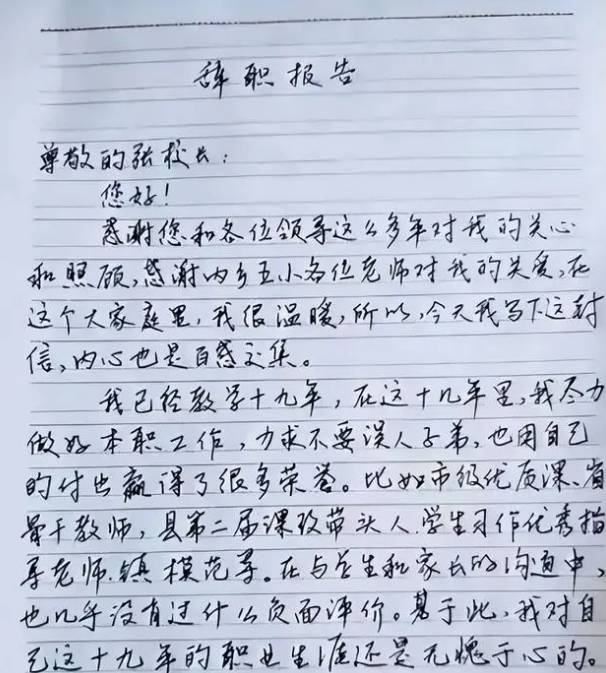 辞职报告
尊敬的张校长：
您好！
感谢您和各位领导这么多年对我的关心
和照顾，感谢内乡五小各位老师对我的关爱，在
这个大家庭里，我很温暖，所以，今天我写下这封
信，内心也是百感交集。
我已经教学十九年，在这十几年里，我尽力
做好本职工作，力求不要误人子弟，也因自己
的付出赢得了很多荣誉。比如市级优质课、省
骨干教师，县第二届课改带头人，学生习作优秀指
导老师，镇模范等。在与学生和家长的沟通中，
也几乎没有过什么负面评价。基于此，我对自
己这十九年的职业生涯还是无愧于心的。